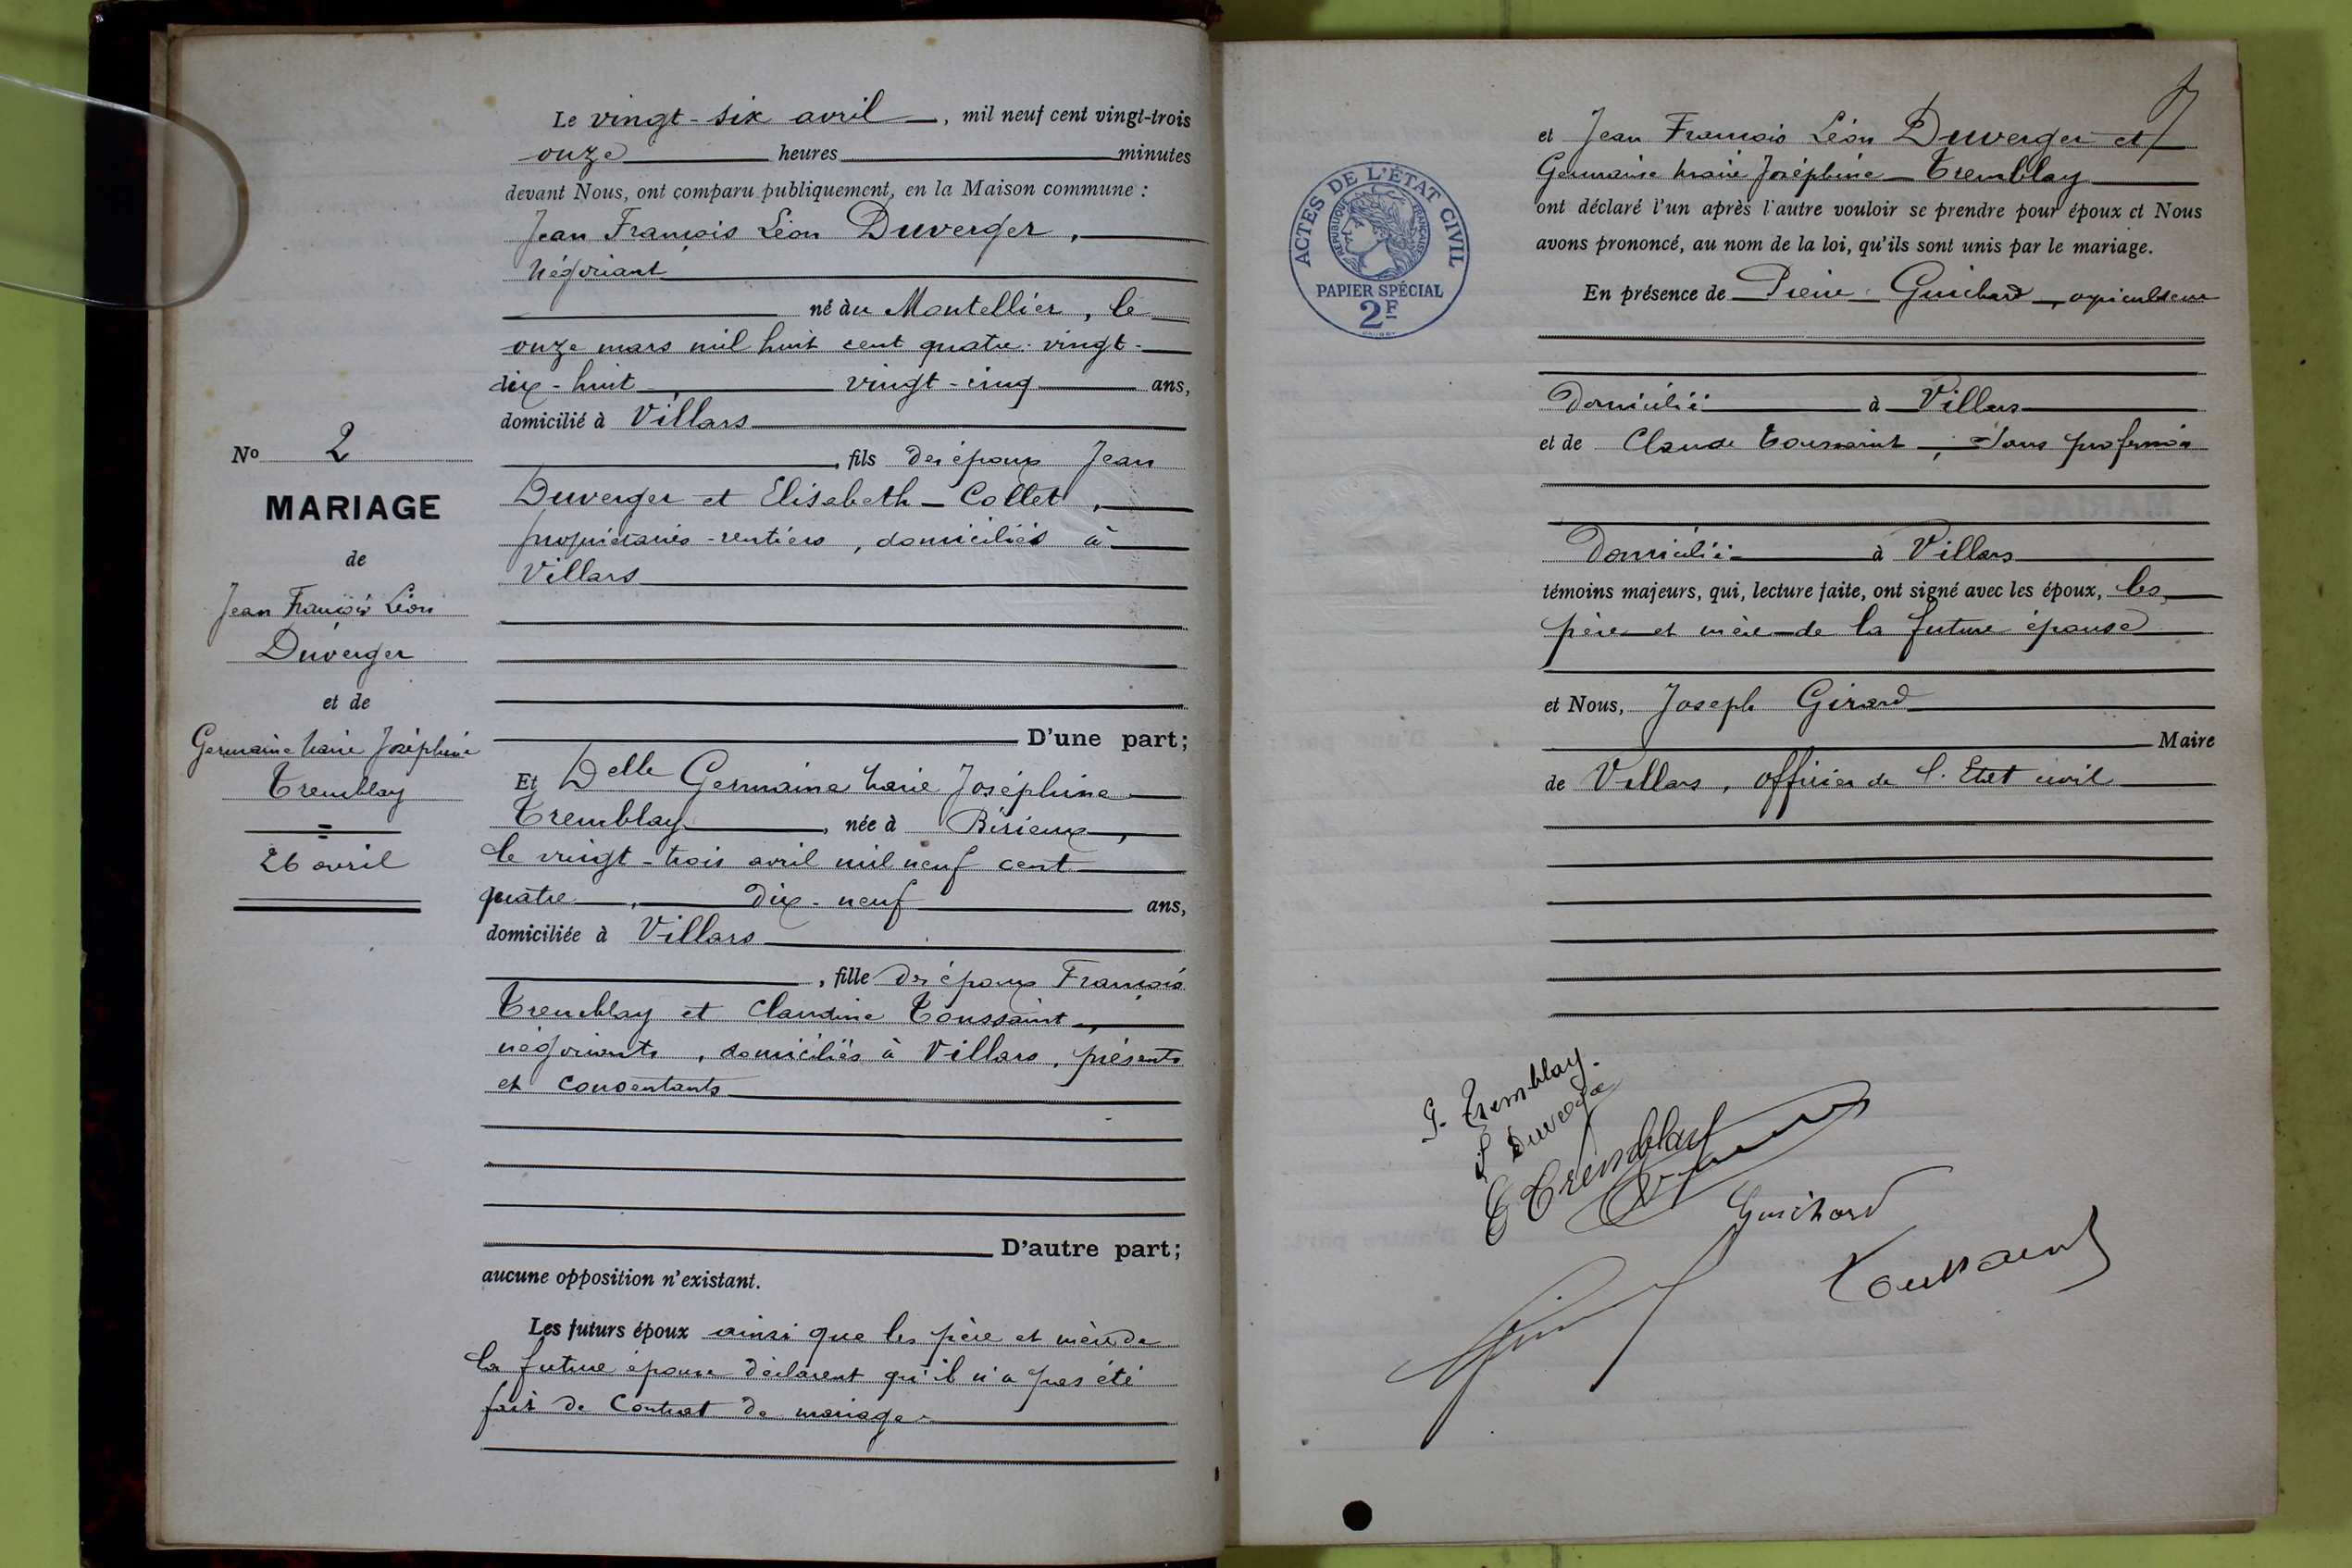 Le vingt-six avril, mil neuf cent vingt-trois
onze heures minutes
devant Nous, ont comparu publiquement, en la Maison commune :
Jean François Léon Duverger,
négociant
né au Montellier, le
onze mars mil huit cent quatre-vingt-
dix-huit, vingt-cinq ans,
domicilié à Villars
, fils des époux Jean
Duverger et Elisabeth Collet,
propriétaires-rentiers, domiciliés à
Villars
D'une part;
No 2
MARIAGE
de
Jean François Léon
Duverger
et de
Germaine Marie Joséphine
Tremblay
26 avril
Et Delle Germaine Marie Joséphine
Tremblay, née à Birieux,
le vingt-trois avril mil neuf cent
quatre, dix-neuf ans,
domiciliée à Villars
, fille des époux François
Tremblay et Claudine Toussaint,
négociants, domiciliés à Villars, présents
et consentants
D'autre part;
aucune opposition n'existant.
Les futurs époux ainsi que les père et mère de
la future épouse déclarent qu'il n'a pas été
fait de contrat de mariage
et Jean François Léon Duverger et
Germaine Marie Joséphine Tremblay
ont déclaré l'un après l'autre vouloir se prendre pour époux et Nous
avons prononcé, au nom de la loi, qu'ils sont unis par le mariage.
ACTES DE L'ÉTAT CIVIL
RÉPUBLIQUE FRANÇAISE
PAPIER SPÉCIAL
2F
En présence de Pierre Guichard, apiculteur
Domicilié à Villars
et de Claude Toussaint, sans profession
Domicilié à Villars
témoins majeurs, qui, lecture faite, ont signé avec les époux, les
père et mère de la future épouse
et Nous, Joseph Girard
Maire
de Villars, officier de l'Etat civil
G. Tremblay.
L Duverger
C Tremblay
Guichard
Toussaint